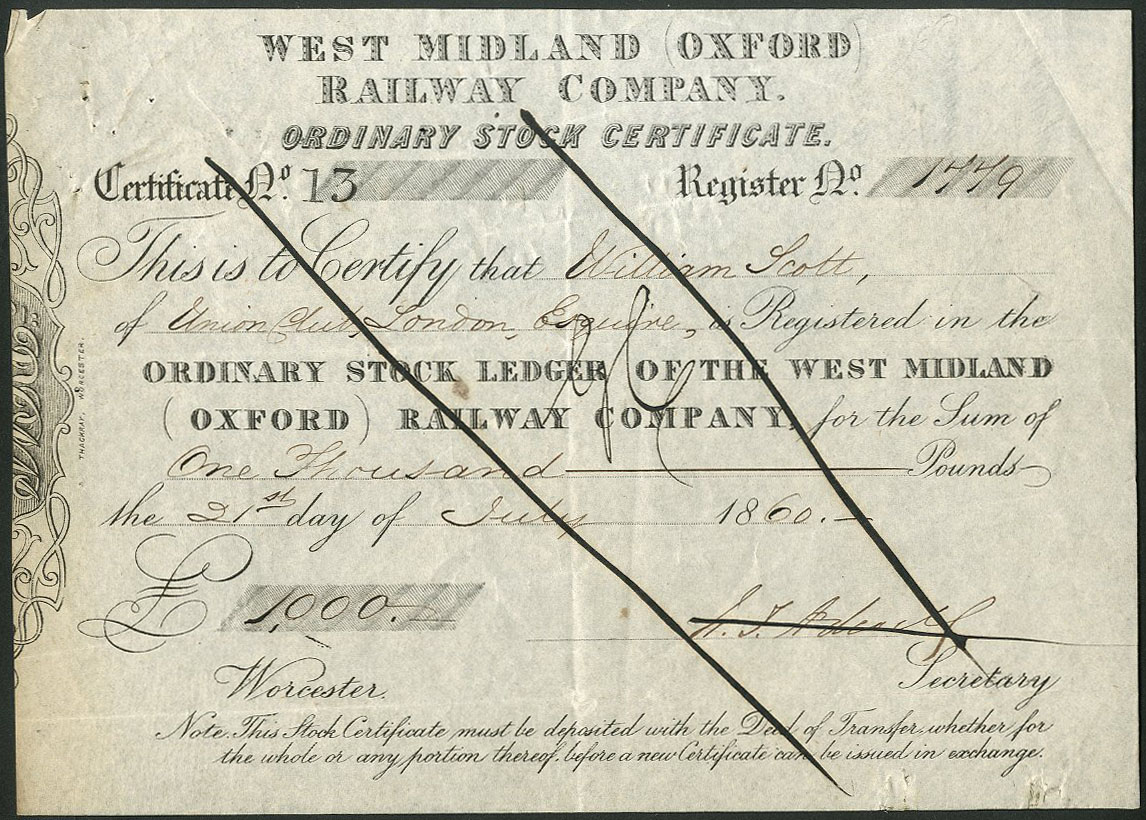 WEST MIDLAND (OXFORD)
RAILWAY COMPANY.
ORDINARY STOCK CERTIFICATE.
Certificate No. 13 Register No. 1779
This is to Certify that William Scott,
of Union Club, London, Esquire, is Registered in the
ORDINARY STOCK LEDGER OF THE WEST MIDLAND
(OXFORD) RAILWAY COMPANY, for the Sum of
One Thousand Pounds
the 21st day of July 1860.
£ 1,000.
Secretary
Worcester.
Note. This Stock Certificate must be deposited with the Deed of Transfer, whether for
the whole or any portion thereof, before a new Certificate can be issued in exchange.
THACKRAY, WORCESTER.